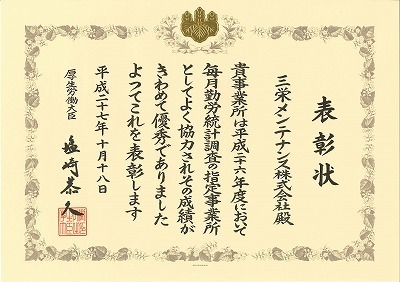 表彰状
三栄メンテナンス株式会社殿
貴事業所は平成二十六年度において
毎月勤労統計調査の指定事業所
としてよく協力されその成績が
きわめて優秀でありました
よってこれを表彰します
平成二十七年十月十八日
厚生労働大臣
塩崎恭久